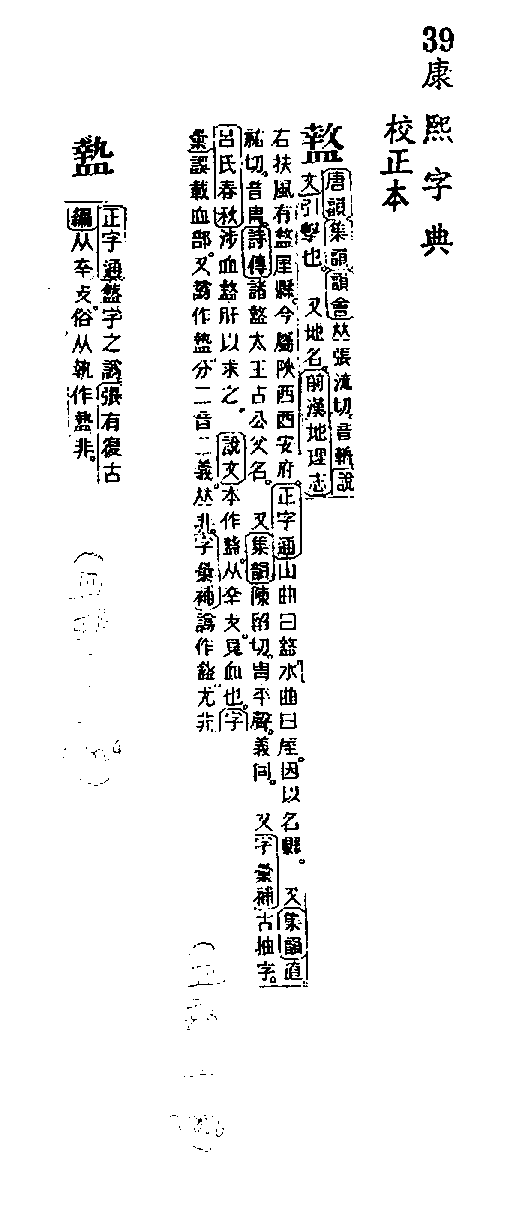 39 康熙字典
校正本
盩
唐韻集韻韻會𠀤張流切音輈說
文引擊也。又地名前漢地理志
右扶風有盩厔縣。今屬陝西西安府。正字通山曲曰盩水曲曰厔。因以名縣。又集韻直
祐切。音胄詩傳諸盩太王古公父名。又集韻陳留切。胄平聲。義同。又字彙補古抽字。
呂氏春秋涉血盩肝以求之。說文本作盩。从㚔攴見血也。字
彙誤載血部。又譌作分二音二義𠀤非。字彙補譌作尤非
正字通盩字之譌張有復古
編从㚔攴。俗从執作非。